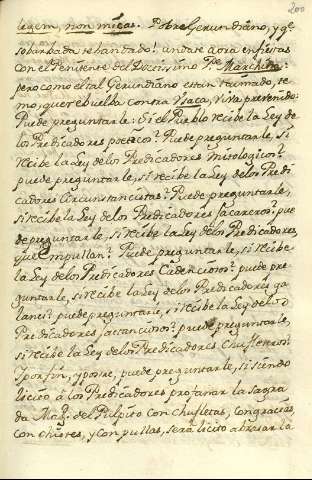 200
legem, non micas. Pobre Gerundiano, y qe
sobarbada te han dado! andate aora en fiestas
con el Penitente del Doctissimo Pe Marchina:
pero como el tal Gerundiano es tan taimado, te
mo, que rebuelba contra Usaca, viva prevenido:
Puede preguntarle: Si el Pueblo recibe la Ley de
los Predicadores poeticos? Puede preguntarle, si
recibe la Ley de los Predicadores mitologicos?
puede preguntarle, si recibe la Ley de los Predi
cadores Circunstancistas? Puede preguntarle,
si recibe la Ley de los Predicadores sacareros? pue
de preguntarle, si recibe la Ley de los Predicadores,
que empullan? Puede preguntarle, si recibe
la Ley de los Predicadores Cadenciosos? puede pre
guntarle, si recibe la Ley de los Predicadores ga
lanes? puede preguntarle, si recibe la Ley de los
Predicadores, puede preguntarle,
si recibe la Ley de los Predicadores Chufleteros?
Y por fin, y postre, puede preguntarle, si siendo
licito à los Predicadores profanar la sagra
da Mag. del Pulpito con chufletas, con gracias,
con chistes, y con pullas, será licito abrasar la